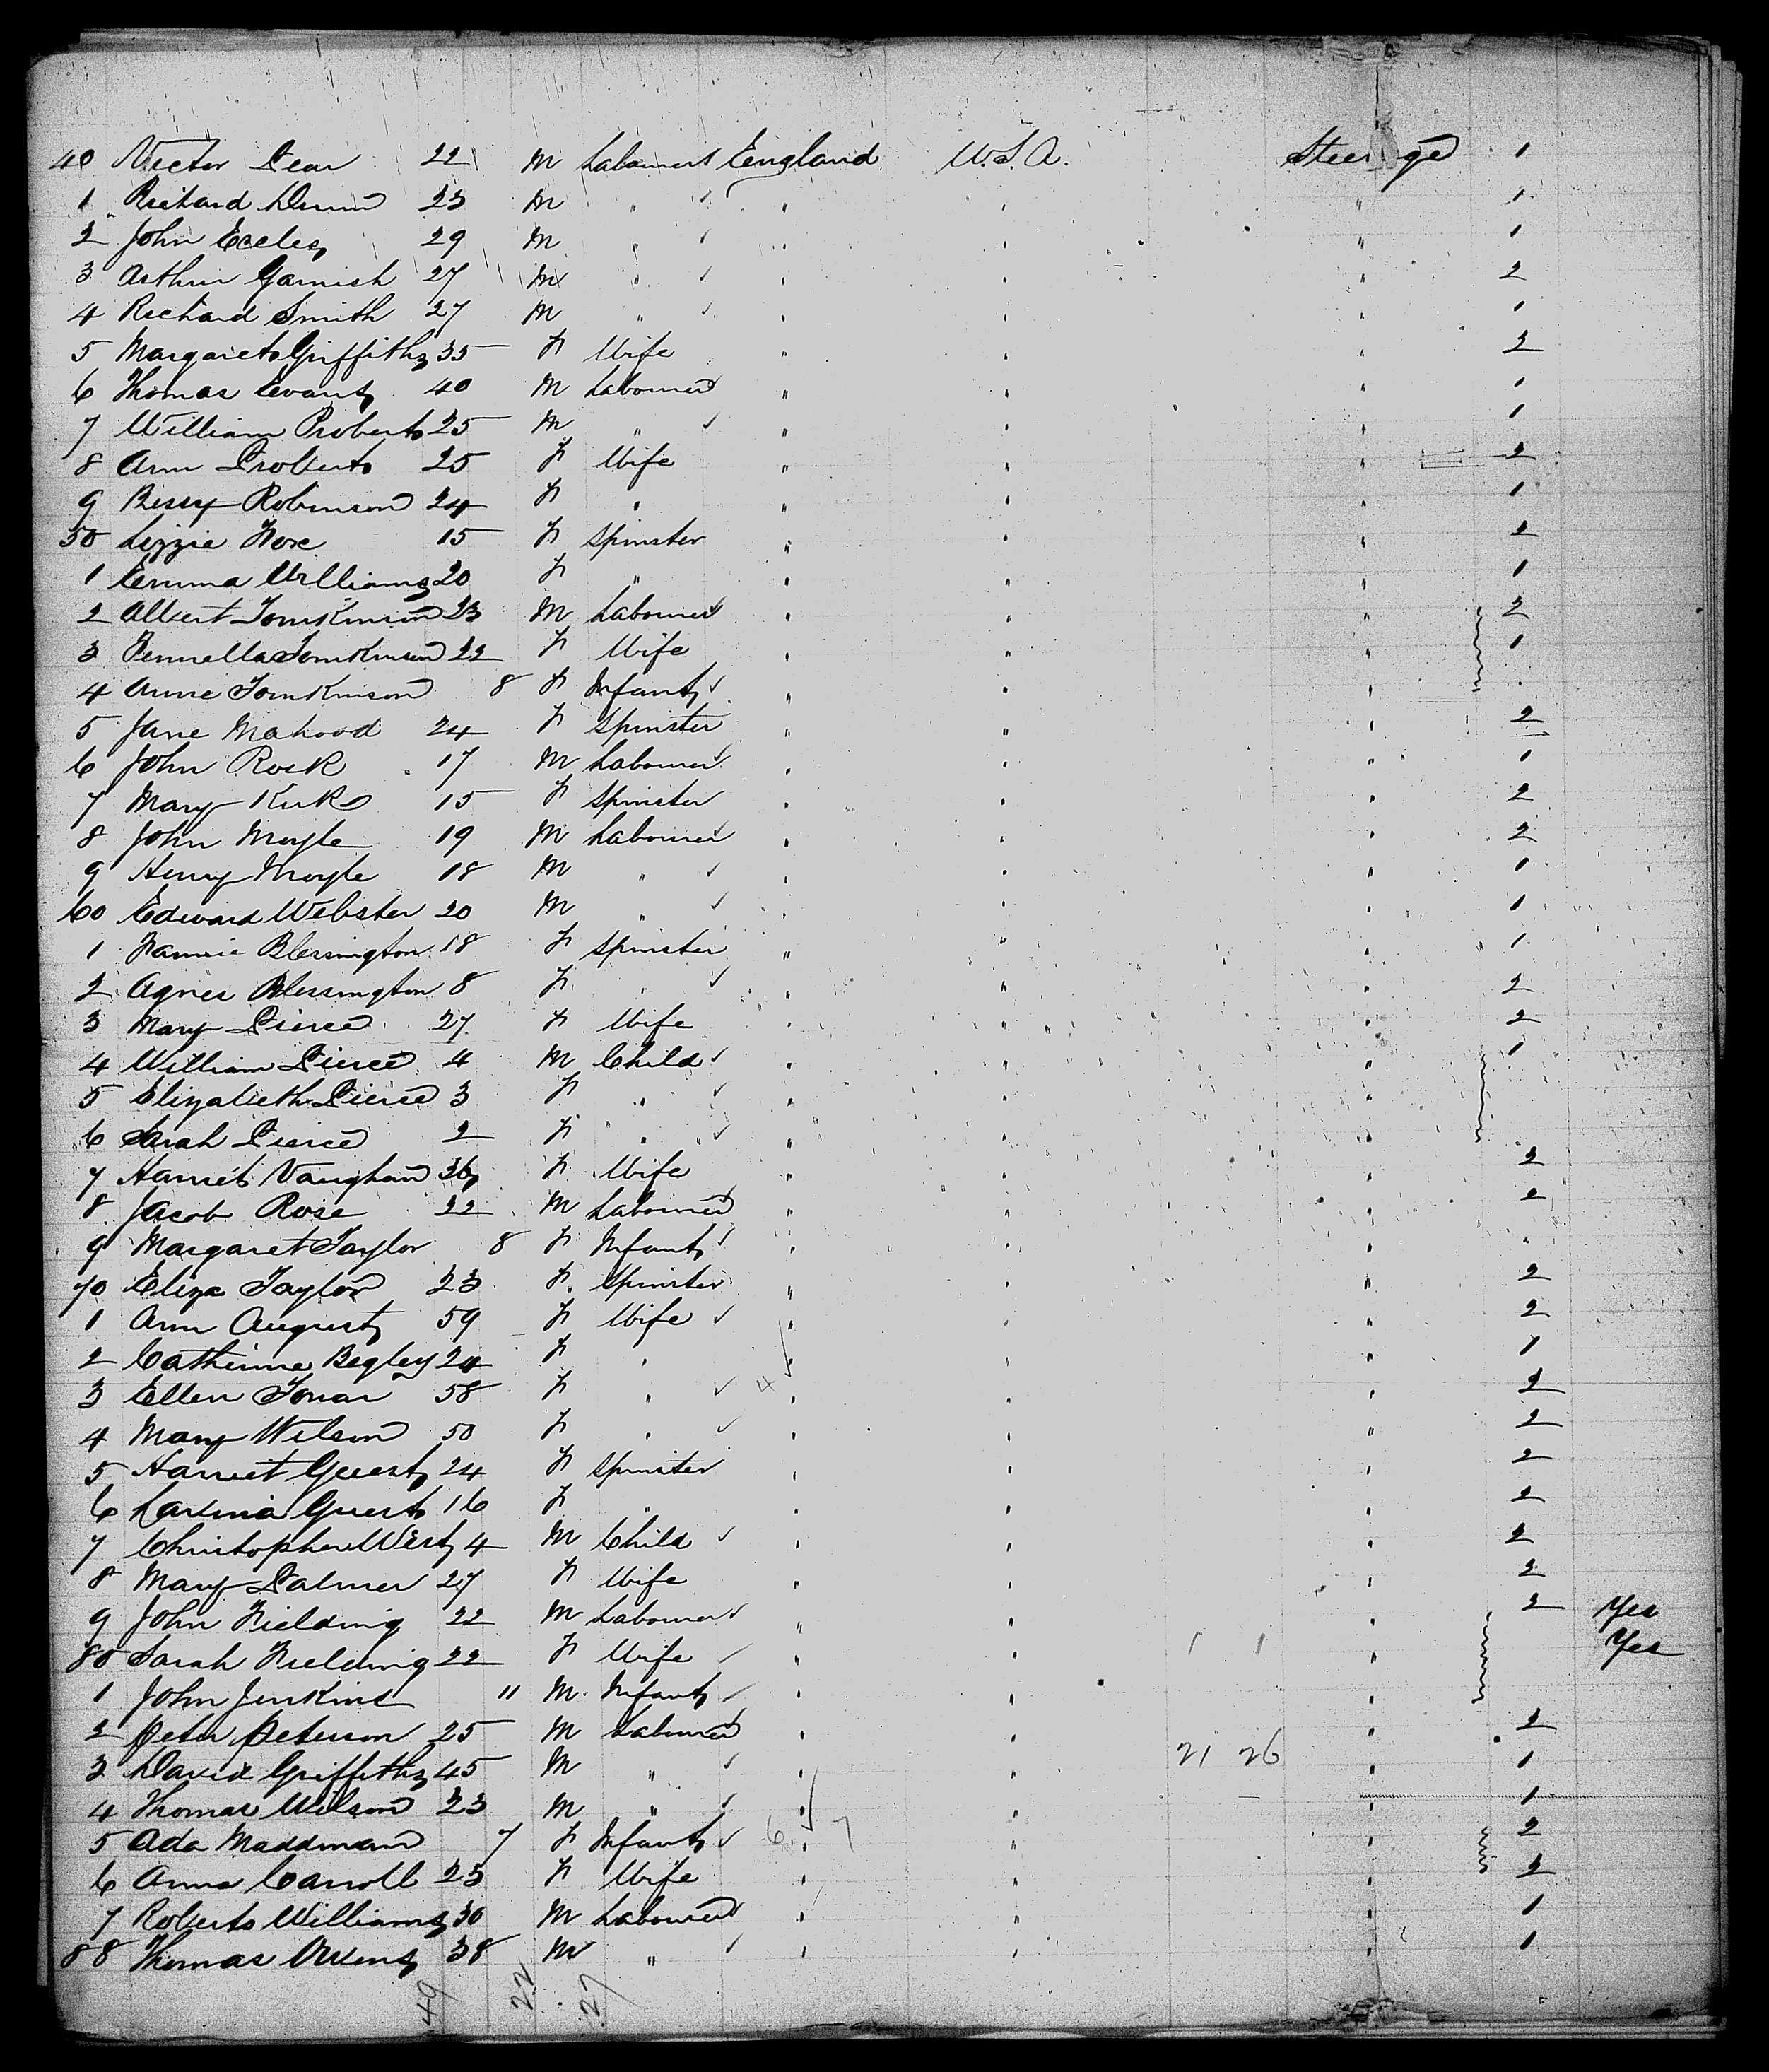 40 Victor Dear 22 M Labourer England U.S.A. Steerage 1
1 Richard Dunn 23 M " " " " 1
2 John Eccles 29 M " " " " 1
3 Arthur Garnish 27 M " " " " 2
4 Richard Smith 27 M " " " " 1
5 Margaret Griffiths 35 F Wife " " " 2
6 Thomas Evans 40 M Labourer " " " 1
7 William Probert 25 M " " " " 1
8 Ann Probert 25 F Wife " " " 2
9 Bessy Robinson 24 F " " " " 1
50 Lizzie Fox 15 F Spinster " " " 2
1 Emma Williams 20 F " " " " 1
2 Albert Tomkinson 23 M Labourer " " " 2
3 Tomkinson 22 F Wife " " " 1
4 Annie Tomkinson 8 F Infant " " "
5 Jane Mahood 24 F Spinster " " " 2
6 John Rock 17 M Labourer " " " 1
7 Mary Kirk 15 F Spinster " " " 2
8 John Moyle 19 M Labourer " " " 2
9 Henry Moyle 18 M " " " " 1
60 Edward Webster 20 M " " " " 1
1 Fannie Blessington 18 F Spinster " " " 1
2 Agnes Blessington 8 F " " " " 2
3 Mary Pierce 27 F Wife " " " 2
4 William Pierce 4 M Child " " " 1
5 Elizabeth Pierce 3 F " " " "
6 Sarah Pierce 2 F " " " "
7 Harriet Vaughan 36 F Wife " " " 2
8 Jacob Rose 22 M Labourer " " " 2
9 Margaret Taylor 8 F Infant " " "
70 Eliza Taylor 23 F Spinster " " " 2
1 Ann August 59 F Wife " " " 2
2 Catherine Begley 24 F " " " " 1
3 Ellen 58 F " 4 " " " 2
4 Mary Wilson 50 F " " " " 2
5 Harriet Guest 24 F Spinster " " " 2
6 Lavinia Guest 16 F " " " " 2
7 Christopher West 4 M Child " " " 2
8 Mary Palmer 27 F Wife " " " 2
9 John Fielding 22 M Labourer " " " 2 Yes
80 Sarah Fielding 22 F Wife " " 1 1 " Yes
1 John Jenkins 11 M Infant " " "
2 Peter Peterson 25 M Labourer " " " 2
3 David Griffiths 45 M " " " 21 26 " 1
4 Thomas Wilson 23 M " " " " 1
5 Ada Maddman 7 F Infant 6 " 7 " " 2
6 Anna Carroll 25 F Wife " " " 2
7 Robert Williams 30 M Labourer " " " 1
88 Thomas Owens 38 M " " " " 1
49 22 27